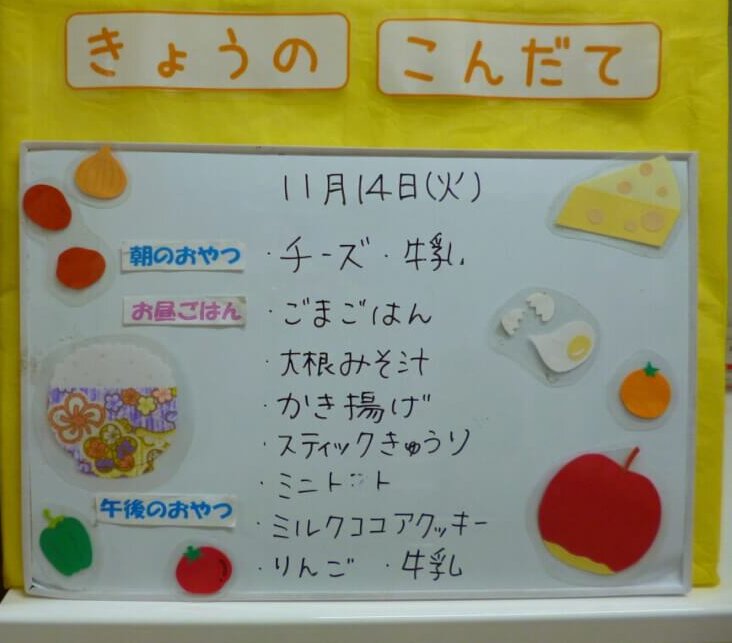 きょうの こんだて
11月14日(火)
朝のおやつ ・チーズ ・牛乳
お昼ごはん ・ごまごはん
・大根みそ汁
・かき揚げ
・スティックきゅうり
・ミニト ト
午後のおやつ ・ミルクココアクッキー
・りんご ・牛乳